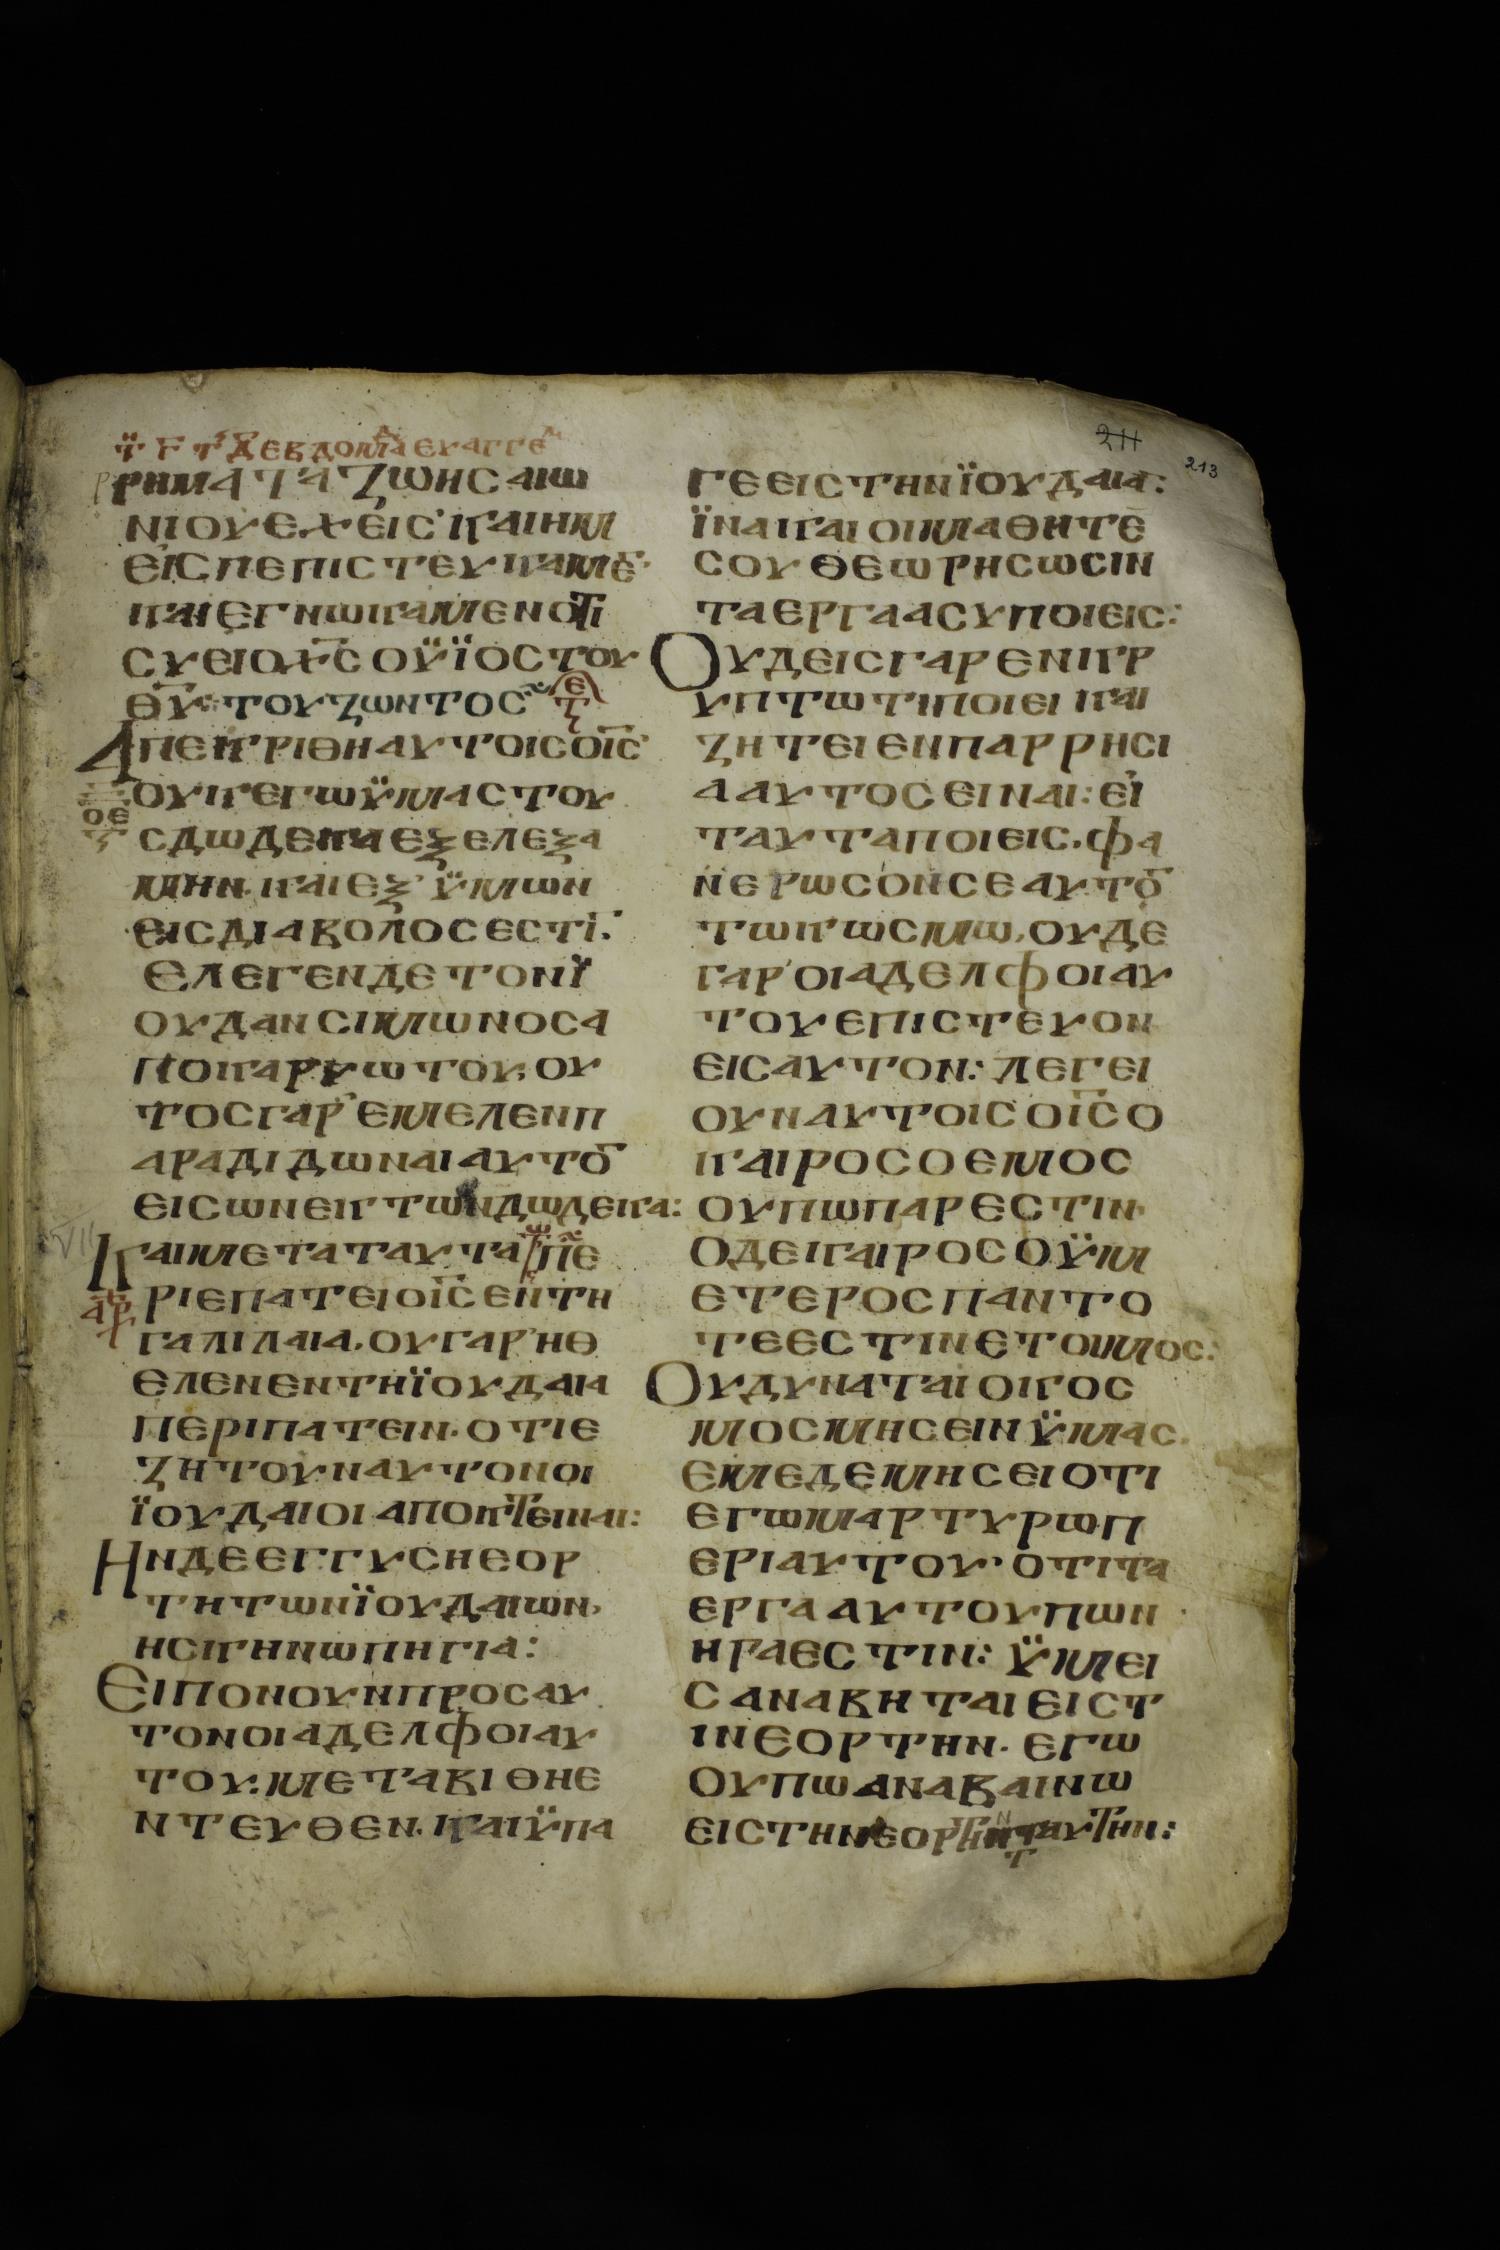 ΡΗΜΑΤΑ ΖΩΗC ΑΙΩ
ΝΙΟΥ ΕΧΕΙC· ΚΑΙ ΗΜ
ΕΙC ΠΕΠΙCΤΕΥΚΑΜΕ̅·
ΚΑΙ ΕΓΝΩΚΑΜΕΝ ΟΤΙ
CΥ ΕΙ Ο Χ̅C Ο ΫΪΟC ΤΟΥ
Θ̅Υ̅: ΤΟΥ ΖΩΝΤΟC·
ΑΠΕΚΡΙΘΗ ΑΥΤΟΙC Ο Ι̅C̅
ΟΥΚ ΕΓΩ ΫΜΑC ΤΟΥ
C ΔΩΔΕΚΑ ΕΞΕΛΕΞΑ
ΜΗΝ· ΚΑΙ ΕΞ ΫΜΩΝ
ΕΙC ΔΙΑΒΟΛΟC ΕCΤΙ̅·
ΕΛΕΓΕΝ ΔΕ ΤΟΝ Ϊ
ΟΥΔΑΝ CΙΜΩΝΟC Α
ΠΟ ΚΑΡΥΩΤΟΥ· ΟΥ
ΤΟC ΓΑΡ ΕΜΕΛΕΝ Π
ΑΡΑΔΙΔΩΝΑΙ ΑΥΤΟ̅
ΕΙC ΩΝ ΕΚ ΤΩΝ ΔΩΔΕΚΑ:
ΚΑΙ ΜΕΤΑ ΤΑΥΤΑ ΠΕ
ΡΙΕΠΑΤΕΙ Ο Ι̅C̅ ΕΝ ΤΗ
ΓΑΛΙΛΑΙΑ· ΟΥ ΓΑΡ ΗΘ
ΕΛΕΝ ΕΝ ΤΗ ΪΟΥΔΑΙΑ
ΠΕΡΙΠΑΤΕΙΝ· ΟΤΙ Ε
ΖΗΤΟΥΝ ΑΥΤΟΝ ΟΙ
ΪΟΥΔΑΙΟΙ ΑΠΟΚΤΕΙΝΑΙ:
ΗΝ ΔΕ ΕΓΓΥC Η ΕΟΡ
ΤΗ ΤΩΝ ΪΟΥΔΑΙΩΝ·
Η CΚΗΝΩΠΗΓΙΑ:
ΕΙΠΟΝ ΟΥΝ ΠΡΟC ΑΥ
ΤΟΝ ΟΙ ΑΔΕΛΦΟΙ ΑΥ
ΤΟΥ: ΜΕΤΑΒΙΘΗ Ε
ΝΤΕΥΘΕΝ· ΚΑΙ ΫΠΑ
ΓΕ ΕΙC ΤΗΝ ΪΟΥΔΑΙΑ:
ΪΝΑ ΚΑΙ ΟΙ ΜΑΘΗΤΕ
CΟΥ ΘΕΩΡΗCΩCΙΝ
ΤΑ ΕΡΓΑ Α CΥ ΠΟΙΕΙC:
ΟΥΔΕΙC ΓΑΡ ΕΝ ΚΡ
ΥΠΤΩ ΤΙ ΠΟΙΕΙ ΚΑΙ
ΖΗΤΕΙ ΕΝ ΠΑΡΡΗCΙ
Α ΑΥΤΟC ΕΙΝΑΙ: ΕΙ
ΤΑΥΤΑ ΠΟΙΕΙC· ΦΑ
ΝΕΡΩCΟΝ CΕΑΥΤΟ̅
ΤΩ ΚΩCΜΩ· ΟΥΔΕ
ΓΑΡ ΟΙ ΑΔΕΛΦΟΙ ΑΥ
ΤΟΥ ΕΠΙCΤΕΥΟΝ
ΕΙC ΑΥΤΟΝ: ΛΕΓΕΙ
ΟΥΝ ΑΥΤΟΙC Ο Ι̅C̅ Ο
ΚΑΙΡΟC Ο ΕΜΟC
ΟΥΠΩ ΠΑΡΕCΤΙΝ·
Ο ΔΕ ΚΑΙΡΟC Ο ΫΜ
ΕΤΕΡΟC ΠΑΝΤΟ
ΤΕ ΕCΤΙΝ ΕΤΟΙΜΟC:
ΟΥ ΔΥΝΑΤΑΙ Ο ΚΟC
ΜΟC ΜΗCΕΙΝ ΫΜΑC·
ΕΜΕ ΔΕ ΜΗCΕΙ ΟΤΙ
ΕΓΩ ΜΑΡΤΥΡΩ Π
ΕΡΙ ΑΥΤΟΥ· ΟΤΙ ΤΑ
ΕΡΓΑ ΑΥΤΟΥ ΠΩΝ
ΗΡΑ ΕCΤΙΝ: ΫΜΕΙ
C ΑΝΑΒΗΤΑΙ ΕΙC Τ
ΙΝ ΕΟΡΤΗΝ· ΕΓΩ
ΟΥΠΩ ΑΝΑΒΑΙΝΩ
ΕΙC ΤΗΝ ΕΟΡΤΗΝ ΤΑΥΤΗΝ:
211
213